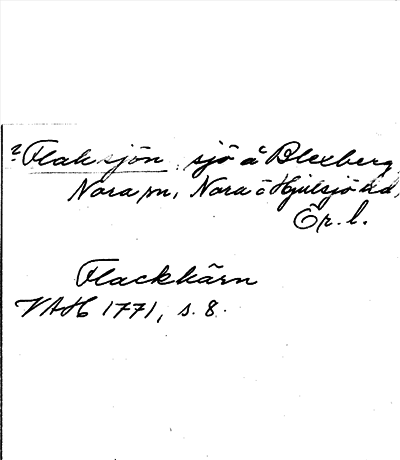 ? Flaksjön sjö å Blexberg
Nora sn, Nora o Hjulsjö hd,
Ör. l.
Flackkärn
VAH 1771, s. 8.